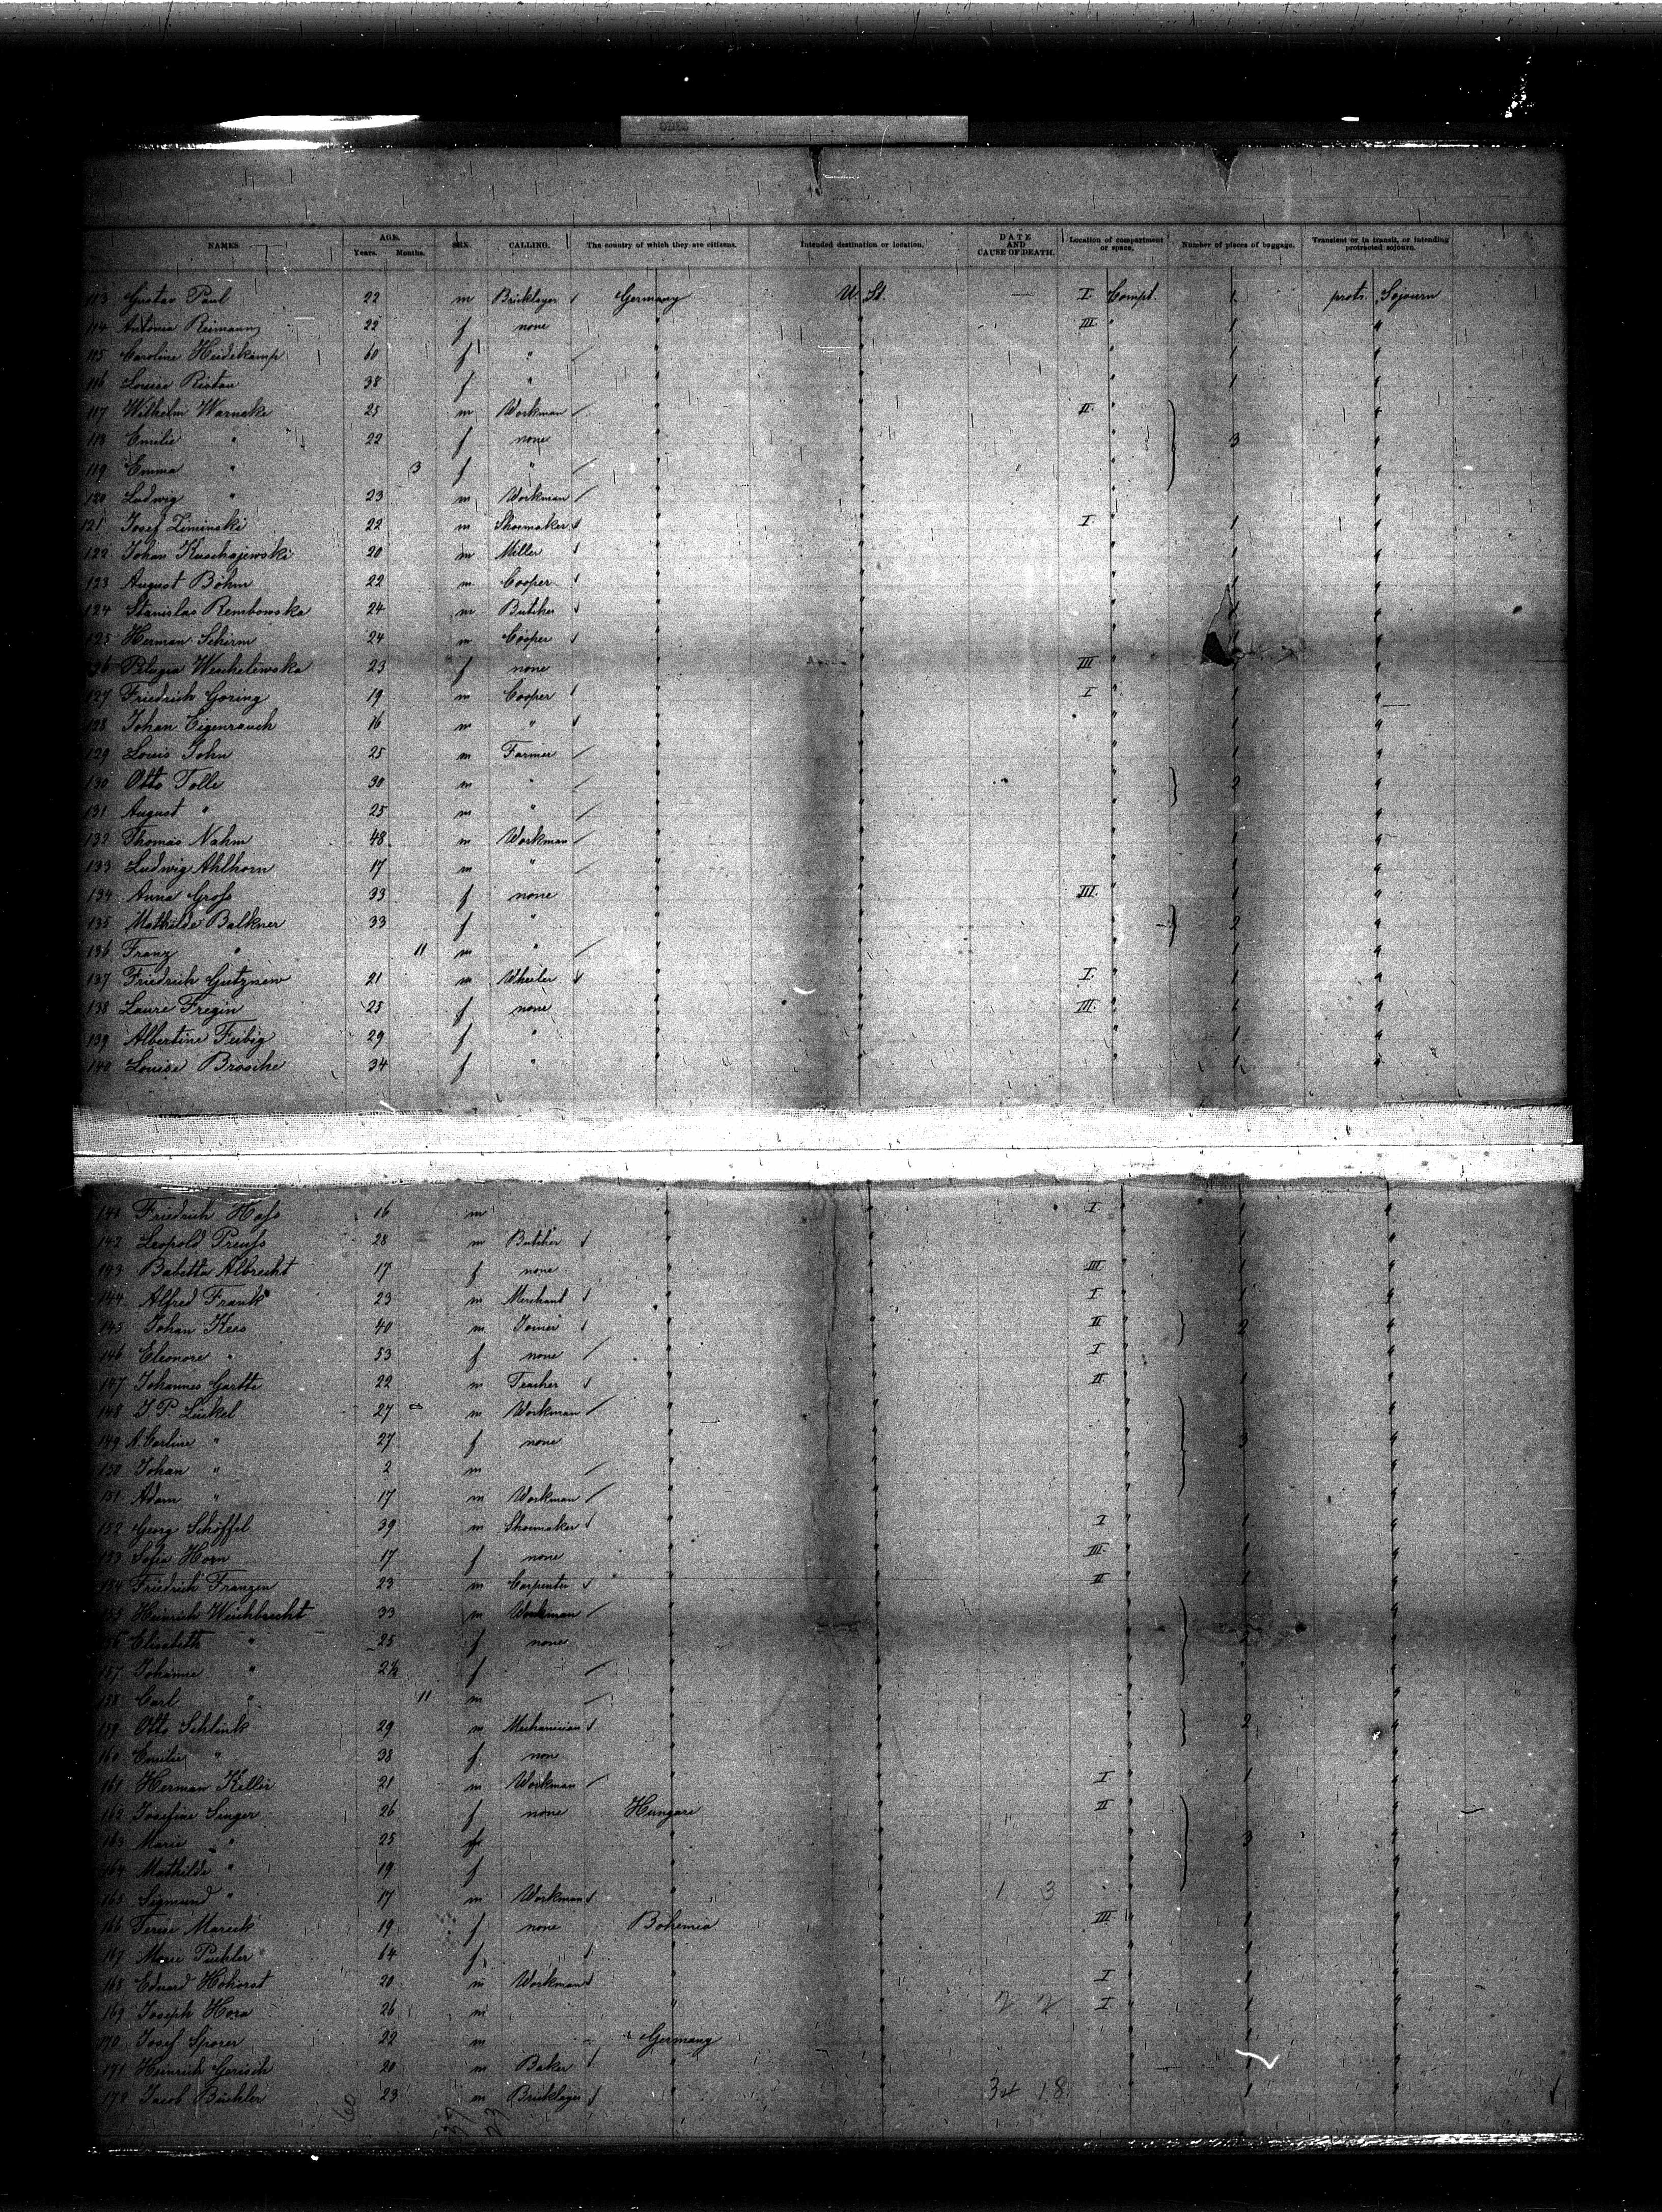 NAMES AGE. Years. Months. SEX. CALLING. The country of which they are citizens. Intended destination or location. DATE AND CAUSE OF DEATH. Location of compartment or space. Number of pieces of baggage. Transient or in transit, or intending protracted sojourn.
113 Gustav Paul 22 m Bricklayer Germany U. St. — I Compt. 1 prots. Sojourn
114 Antonia Reimann 22 f none " " III " 1 "
115 Caroline Heidekamp 60 f " " " " 1 "
116 Louise Ristau 38 f " " " " 1 "
117 Wilhelm Warnake 25 m Workman " " II " "
118 Emilie " 22 f none " " " 3 "
119 Emma " 3 f " " " " "
120 Ludwig " 23 m Workman " " " "
121 Josef Ziminski 22 m Shoemaker " " I " 1 "
122 Johan Kuschajewski 20 m Miller " " " 1 "
123 August Böhm 22 m Cooper " " " 1 "
124 Stanislas Rembowska 24 m Butcher " " " 1 "
125 Herman Schirm 24 m Cooper " " " 1 "
126 Pelagia Weichelewska 23 f none " " III " "
127 Friedrich Goring 19 m Cooper " " I " 1 "
128 Johan Eigenrauch 16 m " " " " 1 "
129 Louis John 25 m Farmer " " " 1 "
130 Otto Tolle 30 m " " " " 2 "
131 August " 25 m " " " " "
132 Thomas Nahm 48 m Workman " " " 1 "
133 Ludwig Ahlhorn 17 m " " " " 1 "
134 Anna Gross 33 f none " " III. " 1 "
135 Mathilde Balkner 33 f " " " " 2 "
136 Franz " 11 m " " " " 1 "
137 Friedrich Gutznew 21 m Wheeler " " I " 1 "
138 Laure Fregin 25 f none " " III. " 1 "
139 Albertine Feibig 29 f " " " " 1 "
140 Louise Brosche 34 f " " " " 1 "
141 Friedrich Hass 16 m " " I " 1 "
142 Leopold Preuss 28 m Butcher " " " 1 "
143 Babetta Albrecht 17 f none " " III " 1 "
144 Alfred Frank 23 m Merchand " " I " 1 "
145 Johan Kess 40 m Joiner " " II " 2 "
146 Eleonore " 53 f none " " I " "
147 Johannes Gartte 22 m Teacher " " II " 1 "
148 J. P. Lückel 27 m Workman " " " "
149 A. Carline " 27 f none " " " 3 "
150 Johan " 2 m " " " "
151 Adam " 17 m Workman " " " "
152 Georg Schöffel 39 m Shoemaker " " I " 1 "
153 Sofia Horn 17 f none " " III " 1 "
154 Friedrich Franzen 23 m Carpenter " " II " 1 "
155 Heinrich Weichbrecht 33 m Workman " " " "
156 Elisabeth " 25 f none " " " "
157 Johanne " 2½ f " " " "
158 Carl " 11 m " " " "
159 Otto Schlink 29 m Mechanician " " " 2 "
160 Emilie " 38 f non " " " "
161 Herman Keller 21 m Workman " " I " 1 "
162 Josefine Singer 26 f none Hungari " II " "
163 Marie " 25 f " " " 3 "
164 Mathilde " 19 f " " " "
165 Sigmund " 17 m Workman " " 1 3 " "
166 Terese Mareck 19 f none Bohemia " III " 1 "
167 Marie Puchler 64 f " " " 1 "
168 Eduard Hohorst 20 m Workman " " I " 1 "
169 Joseph Hora 26 m " " 2 2 I " 1 "
170 Josef Sporer 22 m Germany " " 1 "
171 Heinrich Gerisch 20 m Baker " " " 1 "
172 Jacob Büchler 23 m Bricklayer " " 34 18 " 1 "
60 37 23